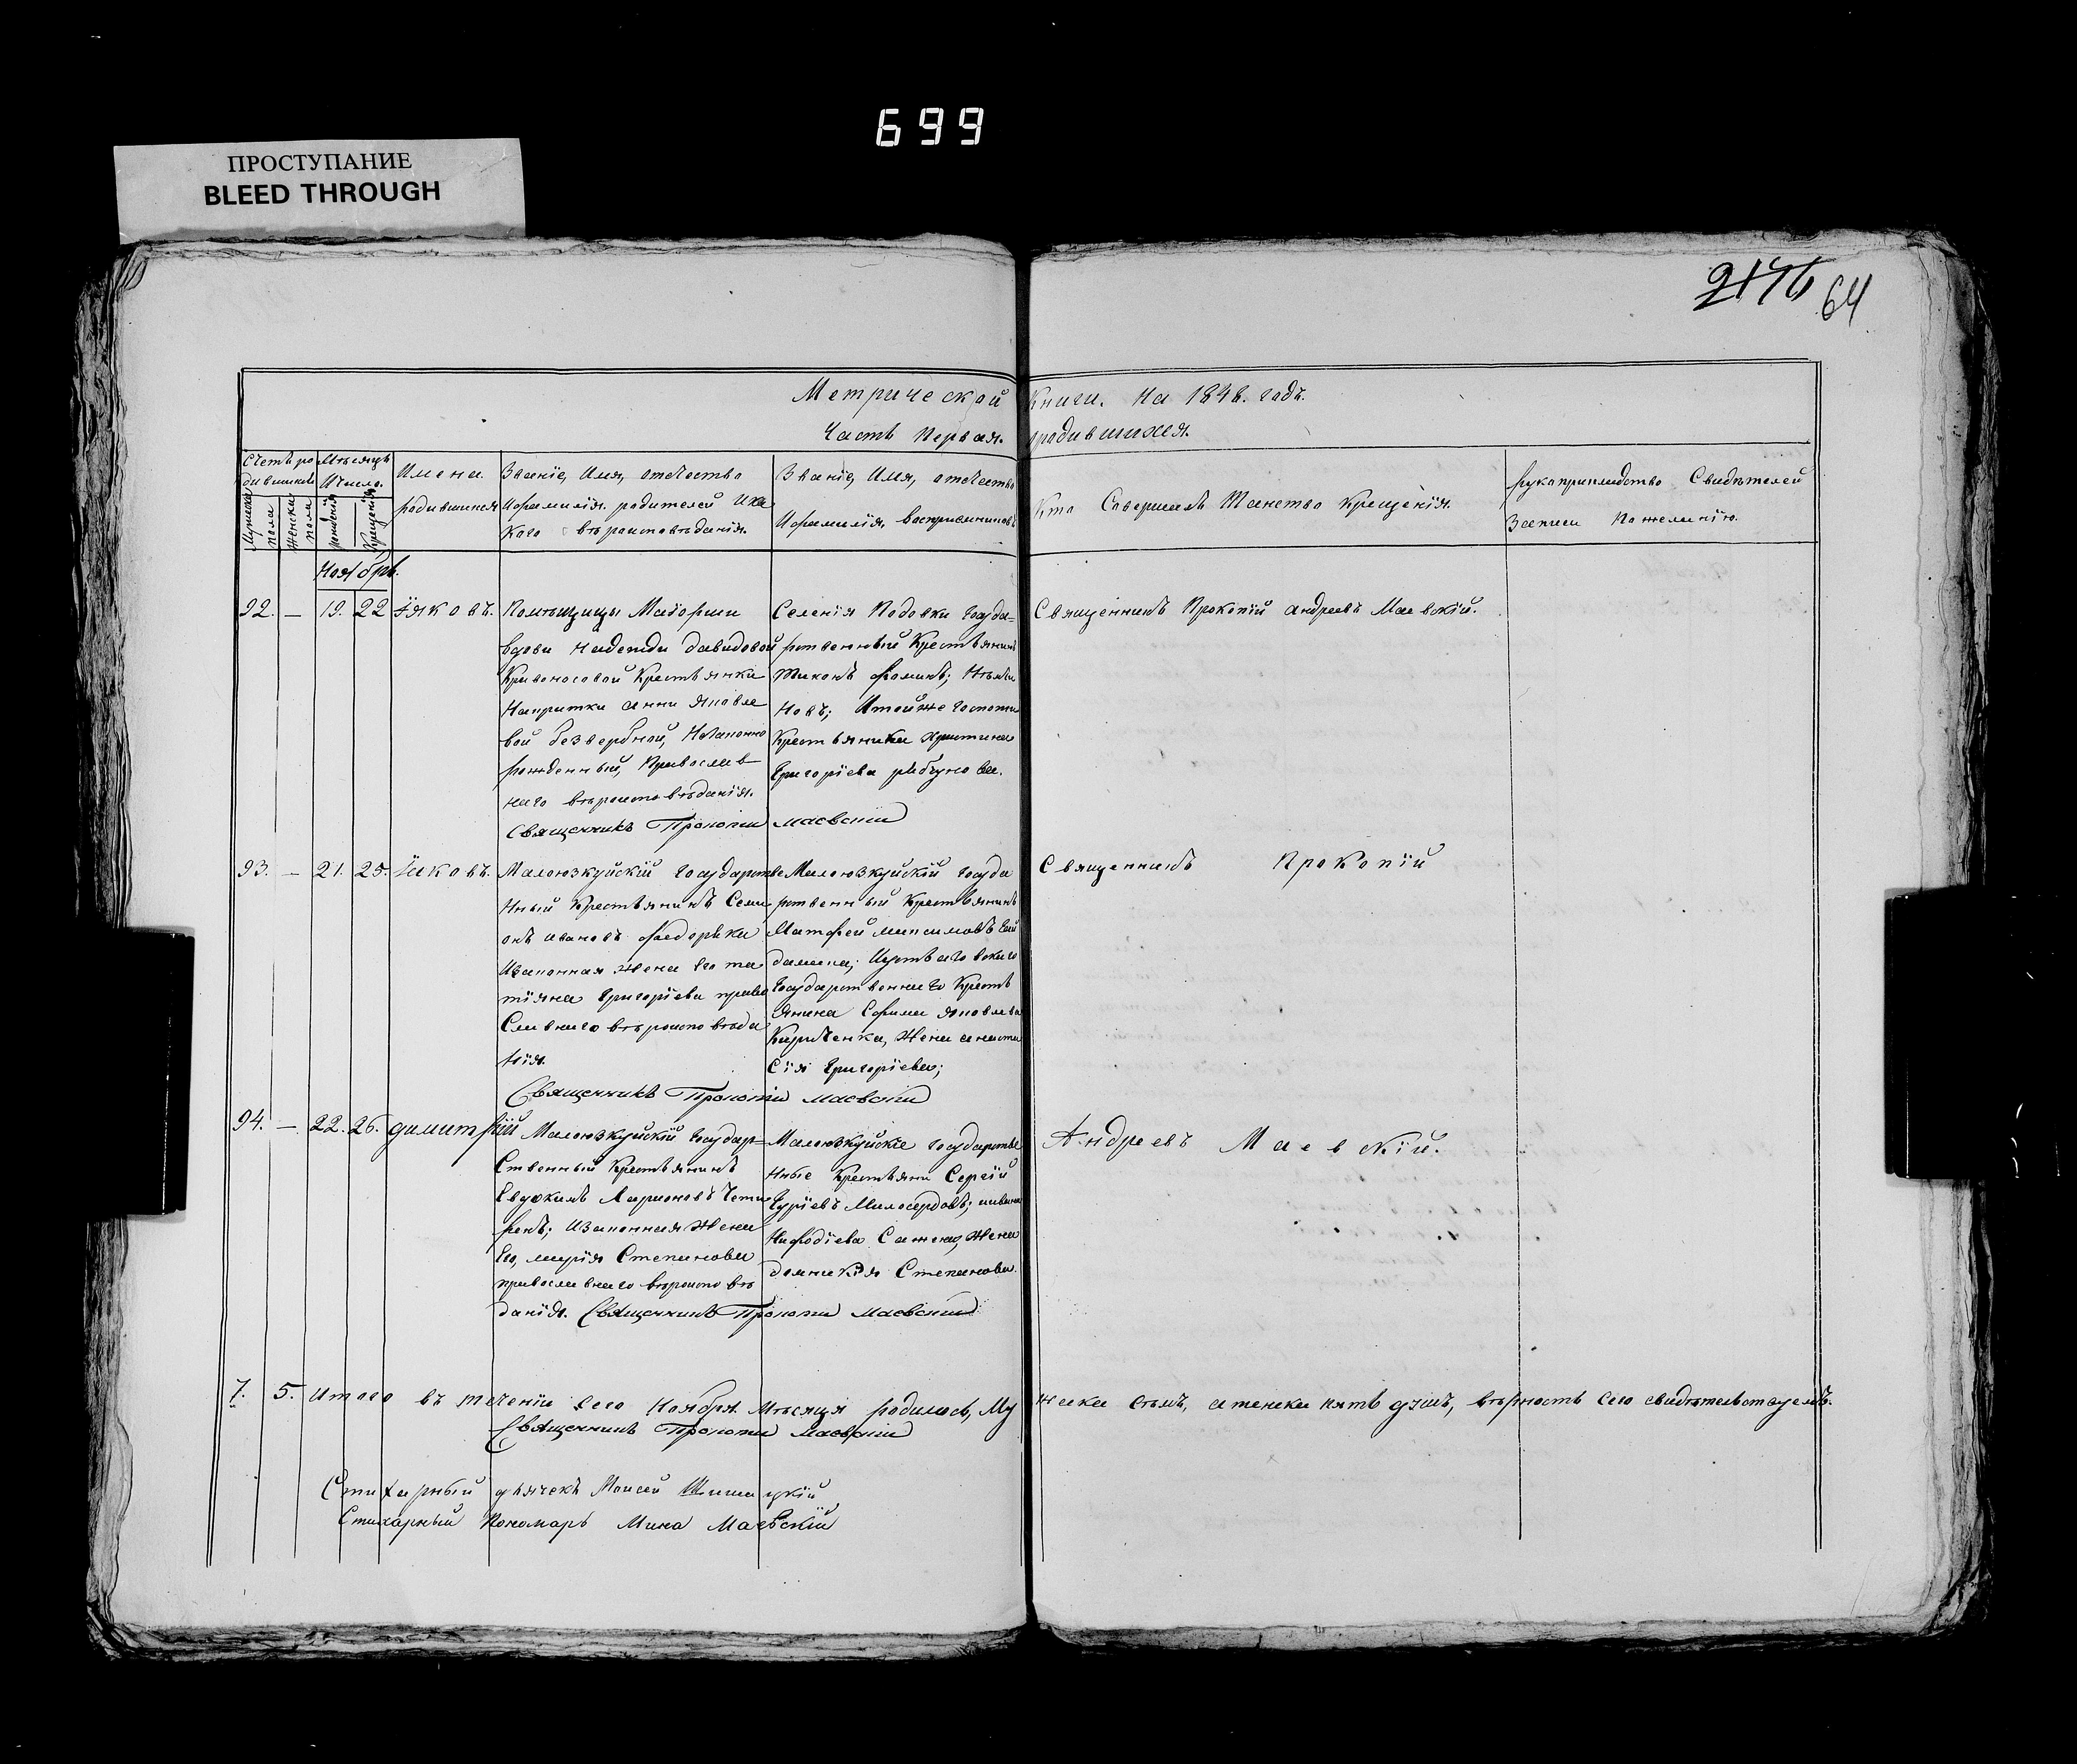 699
ПРОСТУПАНИЕ
BLEED THROUGH
64
Метрической Книги. На 1848. годъ.
Часть Первая. родившихся.
Счетъ ро
дившихся
Мѣсяцъ
И число.
Мужеска
пола
Женска
пола
рожденія
Крещенія
Имена
родившихся
Званіе, Имя, отчество
И фамилія родителей И ка
каго вѣроисповѣданія.
Званіе, Имя, отчество
И фамилія воспріемниковъ
Кто Совершалъ Таинство Крещенія.
рукоприкладство Свидѣтелей
Записи По желанію.
Ноябрь.
92. — 19. 22 Іяковъ.
Помѣщицы Маіорши
вдовы Надежды Давидовой
Кривоносовой Крестьянки
Анны Яковле
вой Безвербной, Незаконно
рожденный, Православ
наго вѣроисповѣданія.
Священникъ Прокопій Маевскій
Селенія Подовки Госуда=
рственный Крестьянинъ
Тихонъ Фоминъ;
новъ; И тойже Госпожи
Крестьянка Христина
Григоріева
Священникъ Прокопій Андреевъ Маевскій.
93. — 21. 25. Іяковъ.
Малоюзкуйскій Государстве
нный Крестьянинъ Семи
онъ Ивановъ Федорѣка
И законная жена его та
тіяна Григоріева право
Славнаго вѣроисповѣда
нія.
Священникъ Прокопій Маевскій
Малоюзкуйскій Госуда
рственный Крестьянинъ
Матфей Максимовъ Гай
дамака;
Государственнаго Кресть
янина Ефима Яковлева
Кириченка, Жена анаста
сія Григоріева;
Священникъ Прокопій
94. — 22. 26. димитрій
Малоюзкуйскій Государ=
ственный Крестьянинъ
Евдокимъ Ларионовъ
И законная Жена
Его, марія Степанова
православнаго вѣроисповѣ
данія. Священникъ Прокопій Маевскій
Малоюзкуйскіе Государстве
нные Крестьяне Сергій
Гуріевъ Милосердовъ; иивана
Нифодіева Сажена, Жена
домникія Степанова.
Андреевъ Маевскій.
7. 5. Итого въ теченіи сего Ноября Мѣсяца родилось, Му жеска семь, а женска пять душъ, вѣрность сего свидѣтельствуемъ.
Священникъ Прокопій Маевскій
Стихарный дьячекъ Моисей Шишацкій
Стихарный Пономарь Мина Маевскій